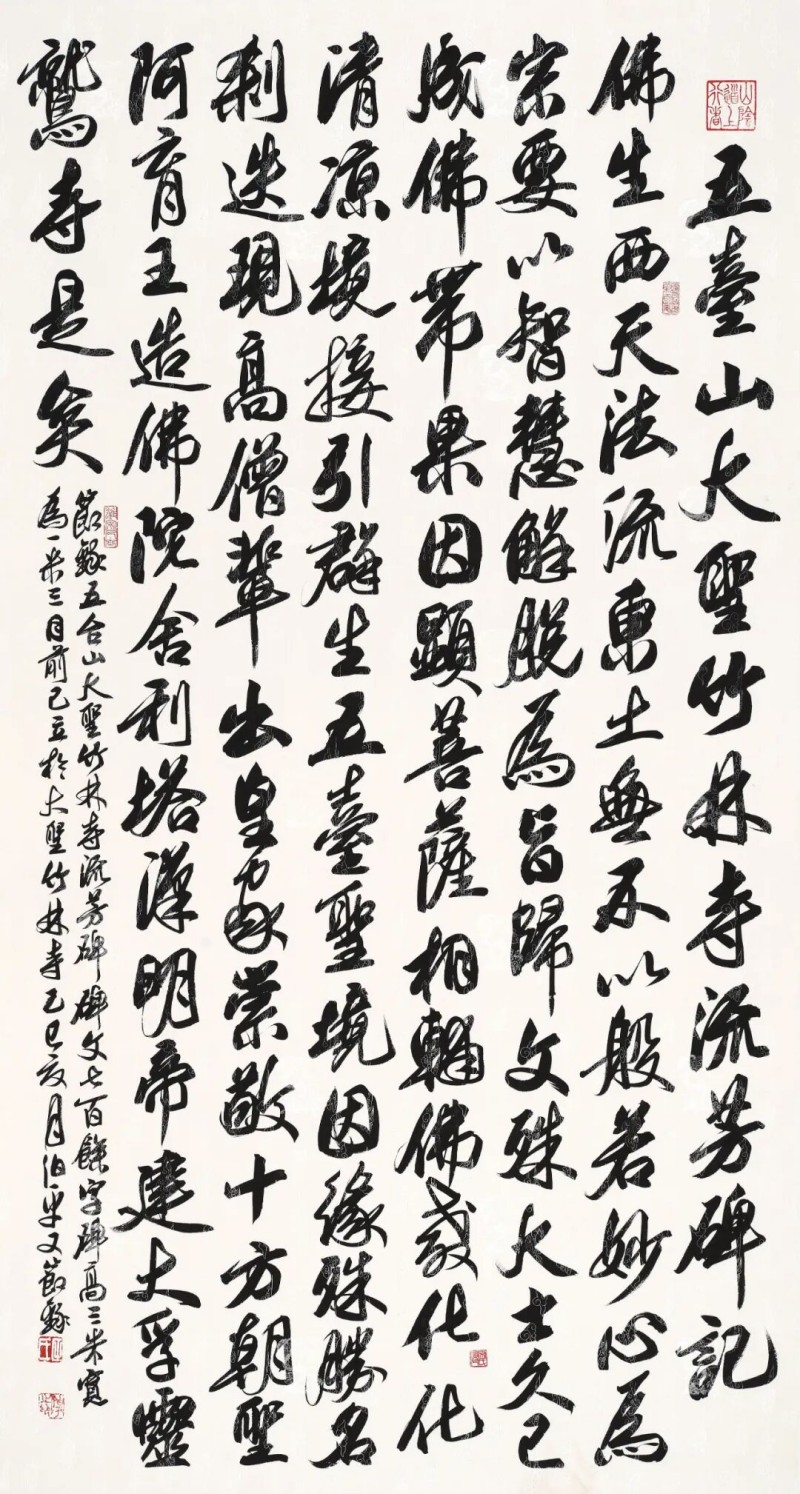 五臺山大聖竹林寺流芳碑記
佛生西天法流東土無不以般若妙心為
宗要以智慧解脫為旨歸文殊大士久已
成佛帶果因顯菩薩相輔佛教化化
清凉境接引群生五臺聖境因緣殊勝名
剎迭現高僧輩出皇家崇敬十方朝聖
阿育王造佛院舍利塔漢明帝建大孚靈
鷲寺是矣
節錄五台山大聖竹林寺流芳碑碑文七百餘字碑高三米寬
為一米三目前已立於大聖竹林寺乙巳亥月伯平又節錄